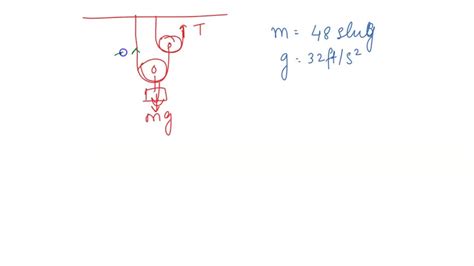 T
mg
m = 48 slug
g = 32ft/s²